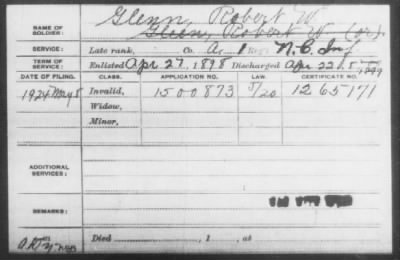 Glenn, Robert W
NAME OF SOLDIER: Gleen, Robert W. (or).
SERVICE: Late rank, Co. A, 1 Reg't N.C. Inf
TERM OF SERVICE: Enlisted Apr 27, 1898 Discharged Apr 22, 1899
DATE OF FILING. CLASS. APPLICATION NO. LAW. CERTIFICATE NO.
1924 May 8 Invalid, 1500873 5/20 1265171
Widow,
Minor,
ADDITIONAL SERVICES:
REMARKS:
Died , 1 , at